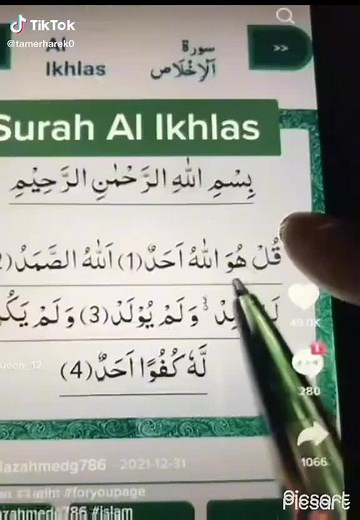 TikTok
@tamerharek0
Al
Ikhlas
سورة
الإخلاص
>>
Surah Al Ikhlas
بِسْمِ اللهِ الرَّحْمٰنِ الرَّحِيْمِ
قُلْ هُوَ اللهُ اَحَدٌ(1) اَللهُ الصَّمَدُ(2
وَلَمْ يُوْلَدْ(3) وَلَمْ
لَّهٗ كُفُوًا اَحَدٌ(4)
49.0K
1
280
1066
iazahmedg786 2021-12-31
#foryoupage
medg786 #islam
Picsart